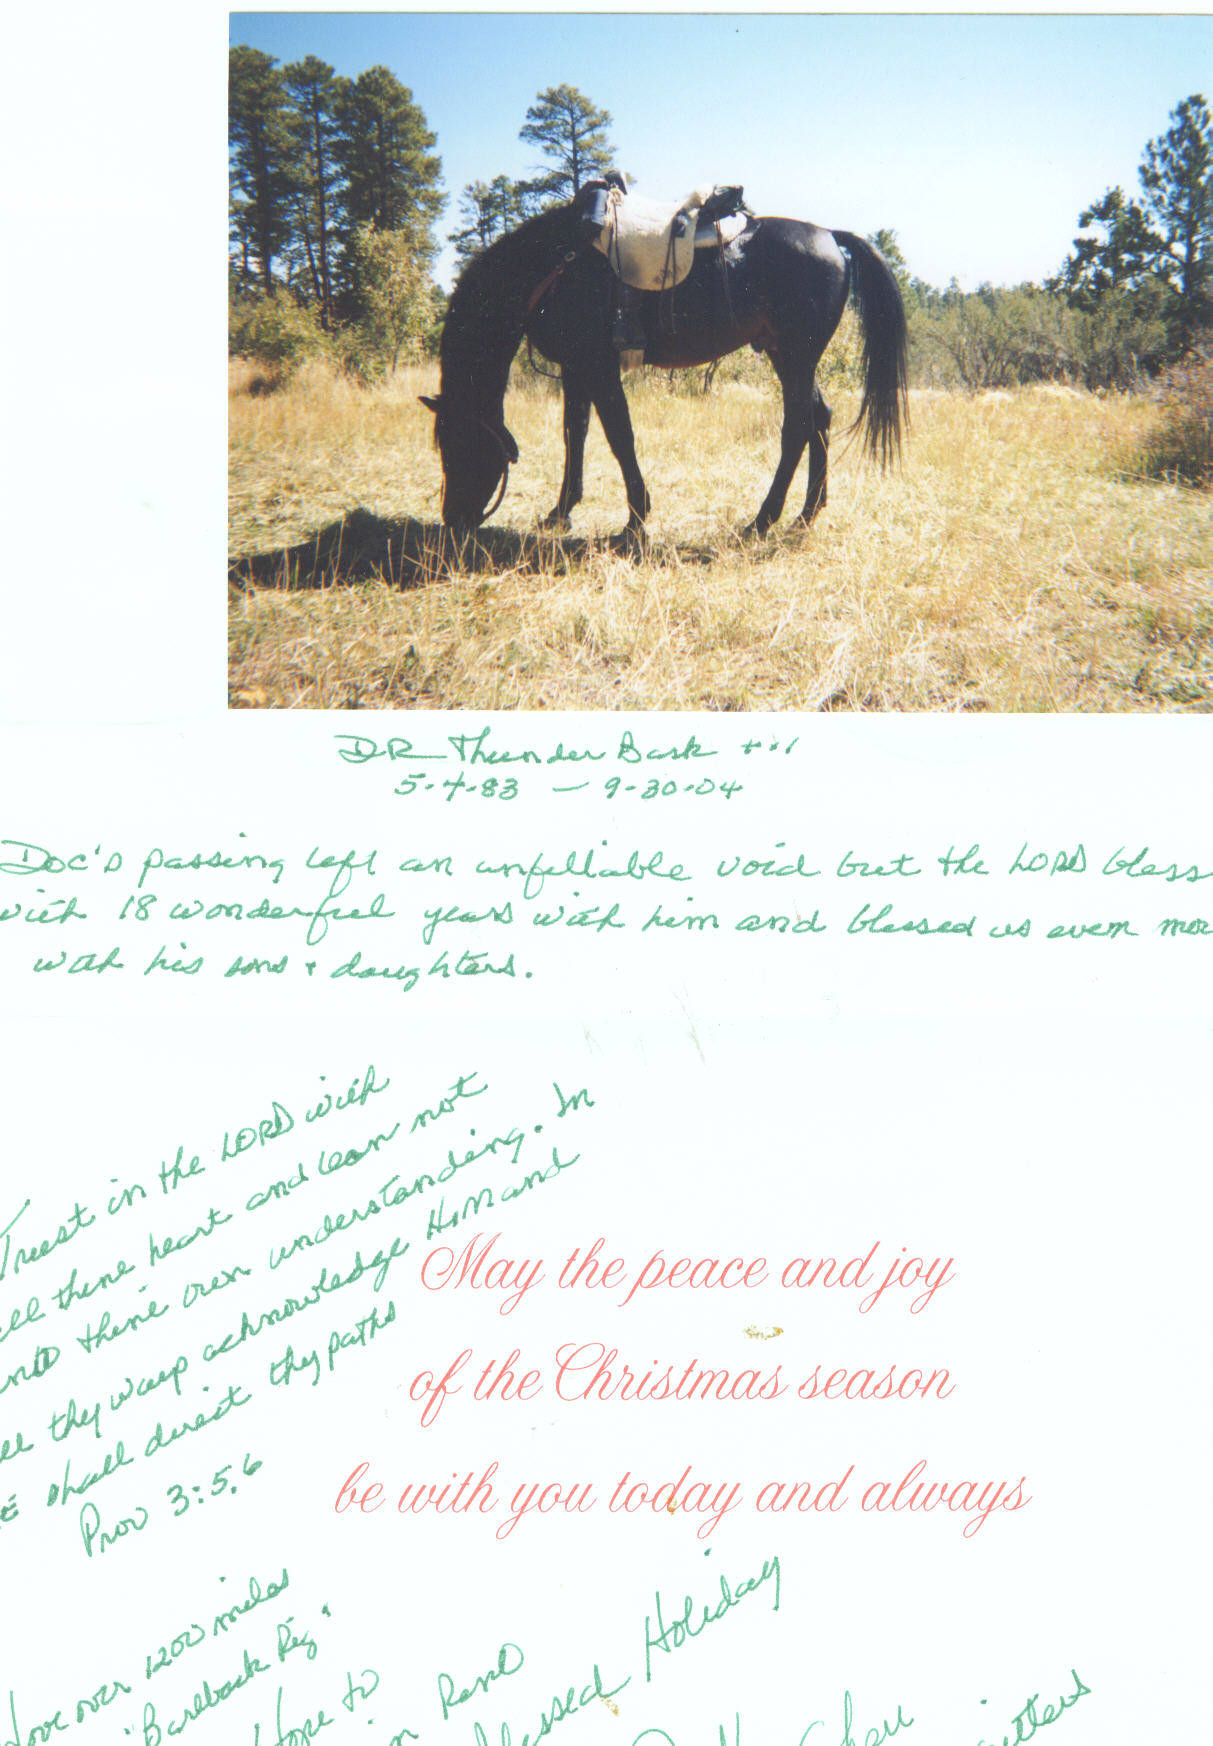 DR Thunder Bask
5-4-83 — 9-30-04
Doc's passing left an unfillable void but the LORD bless
with 18 wonderful years with him and blessed us even mor
with his sons + daughters.
Trust in the LORD with
all thine heart and lean not
unto thine own understanding. In
all thy ways acknowledge HIM and
HE shall direct thy paths
Prov 3:5,6
May the peace and joy
of the Christmas season
be with you today and always
over 1200 miles
"Bareback Rig"
Hope to
blessed Holiday